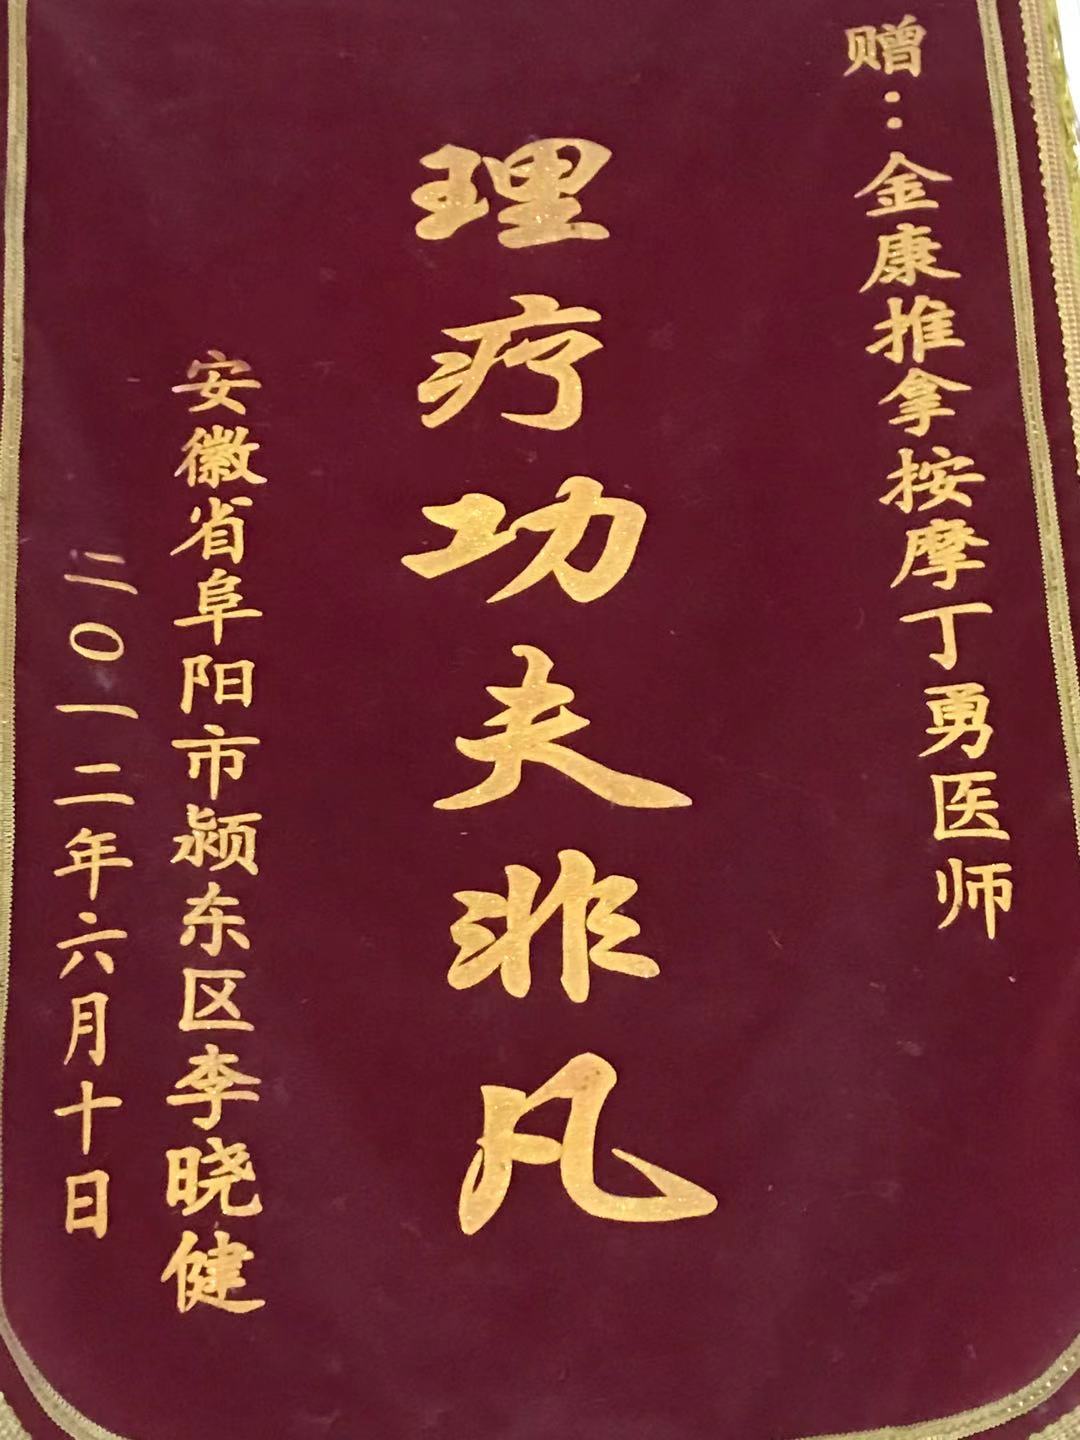 赠：金康推拿按摩丁勇医师
理疗功夫非凡
安徽省阜阳市颍东区李晓健
二〇一二年六月十日